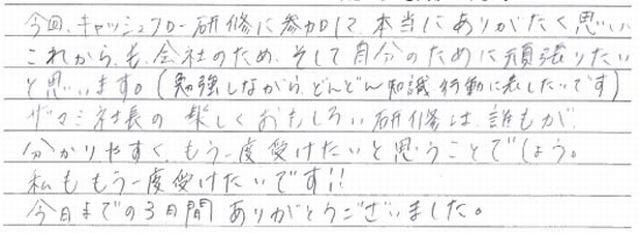 今回、キャッシュフロー研修に参加して、本当にありがたく思い
これからも、会社のため、そして自分のために頑張りたい
と思います。(勉強しながら、どんどん知識 行動に表したいです)
社長の 楽しくおもしろい研修は、誰もが
分かりやすく、もう一度受けたいと思うことでしょう。
私ももう一度受けたいです!!
今日までの3日間 ありがとうございました。